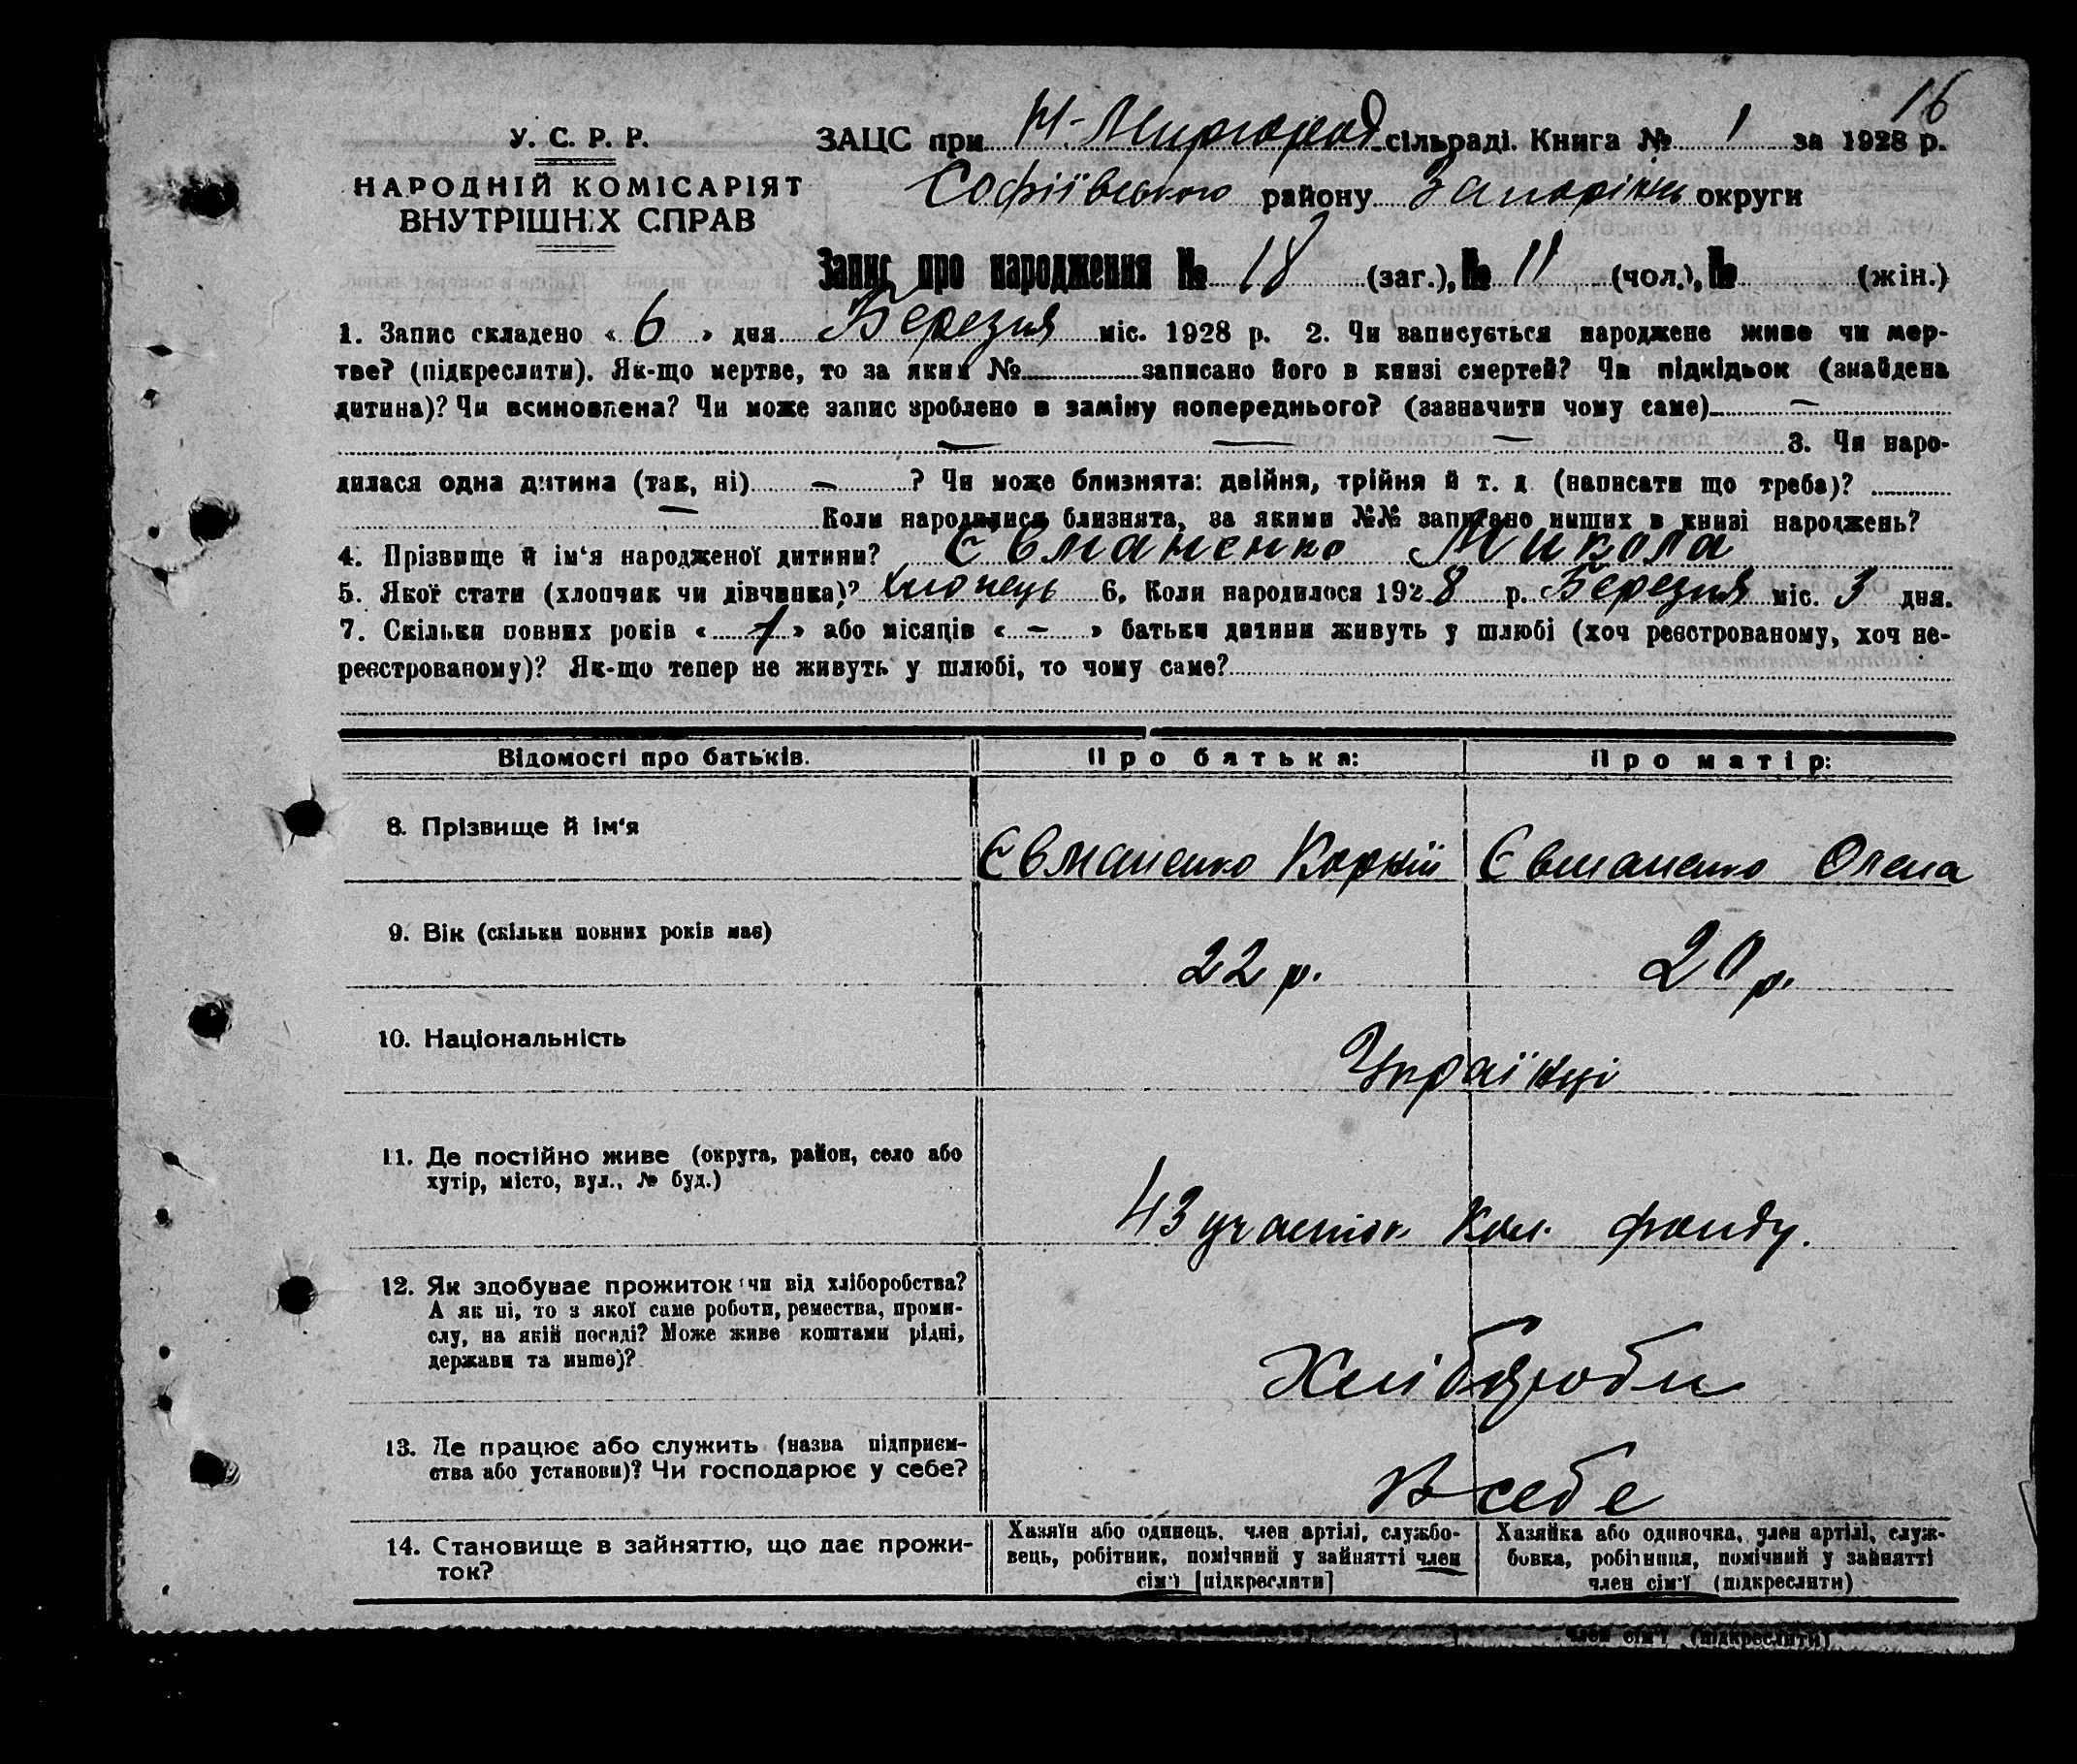 16
У. С. Р. Р.
НАРОДНІЙ КОМІСАРІЯТ
ВНУТРІШНІХ СПРАВ
ЗАЦС при Н-Миргород сільраді. Книга № 1 за 1928 р.
Софіївського району Запоріжь округи
Запис про народження № 18 (заг.), № 11 (чол.), № (жін.)
1. Запис складено « 6 » дня Березня міс. 1928 р. 2. Чи записується народжене живе чи мер-
тве? (підкреслити). Як-що мертве, то за яким № записано його в книзі смертей? Чи підкідьок (знайдена
дитина)? Чи всиновлена? Чи може запис зроблено в заміну попереднього? (зазначити чому саме) —
— — — 3. Чи наро-
дилася одна дитина (так, ні) — ? Чи може близнята: двійня, трійня й т. д (написати що треба)?
— Коли народилися близнята, за якими №№ записано инших в книзі народжень?
4. Прізвище й ім‘я народженої дитини? Євманенко Микола
5. Якої стати (хлопчик чи дівчинка)? Хлопець 6. Коли народилося 1928 р. Березня міс. 3 дня.
7. Скільки повних років « 1 » або місяців « — » батьки дитини живуть у шлюбі (хоч реєстрованому, хоч не-
реєстрованому)? Як-що тепер не живуть у шлюбі, то чому саме?
Відомості про батьків. Про батька: Про матір:
8. Прізвище й ім‘я Євманенко Корній Євманенко Олена
9. Вік (скільки повних років має) 22 р. 20 р.
10. Національність Українці
11. Де постійно живе (округа, район, село або
хутір, місто, вул., № буд.)
43 участок Кол. фонду.
12. Як здобуває прожиток (чи від хліборобства?
А як ні, то з якої саме роботи, ремества, проми-
слу, на якій посаді? Може живе коштами рідні,
держави та инше)?
Хлібороби
13. Де працює або служить (назва підприєм-
ства або установи)? Чи господарює у себе?
В себе
14. Становище в зайняттю, що дає прожи-
ток?
Хазяїн або одинець, член артілі, службо-
вець, робітник, помічний у зайнятті член
сім‘ї [підкреслити]
Хазяйка або одиночка, член артілі, служ-
бовка, робітниця, помічний у зайнятті
член сім‘ї (підкреслити)
член сім‘ї (підкреслити)